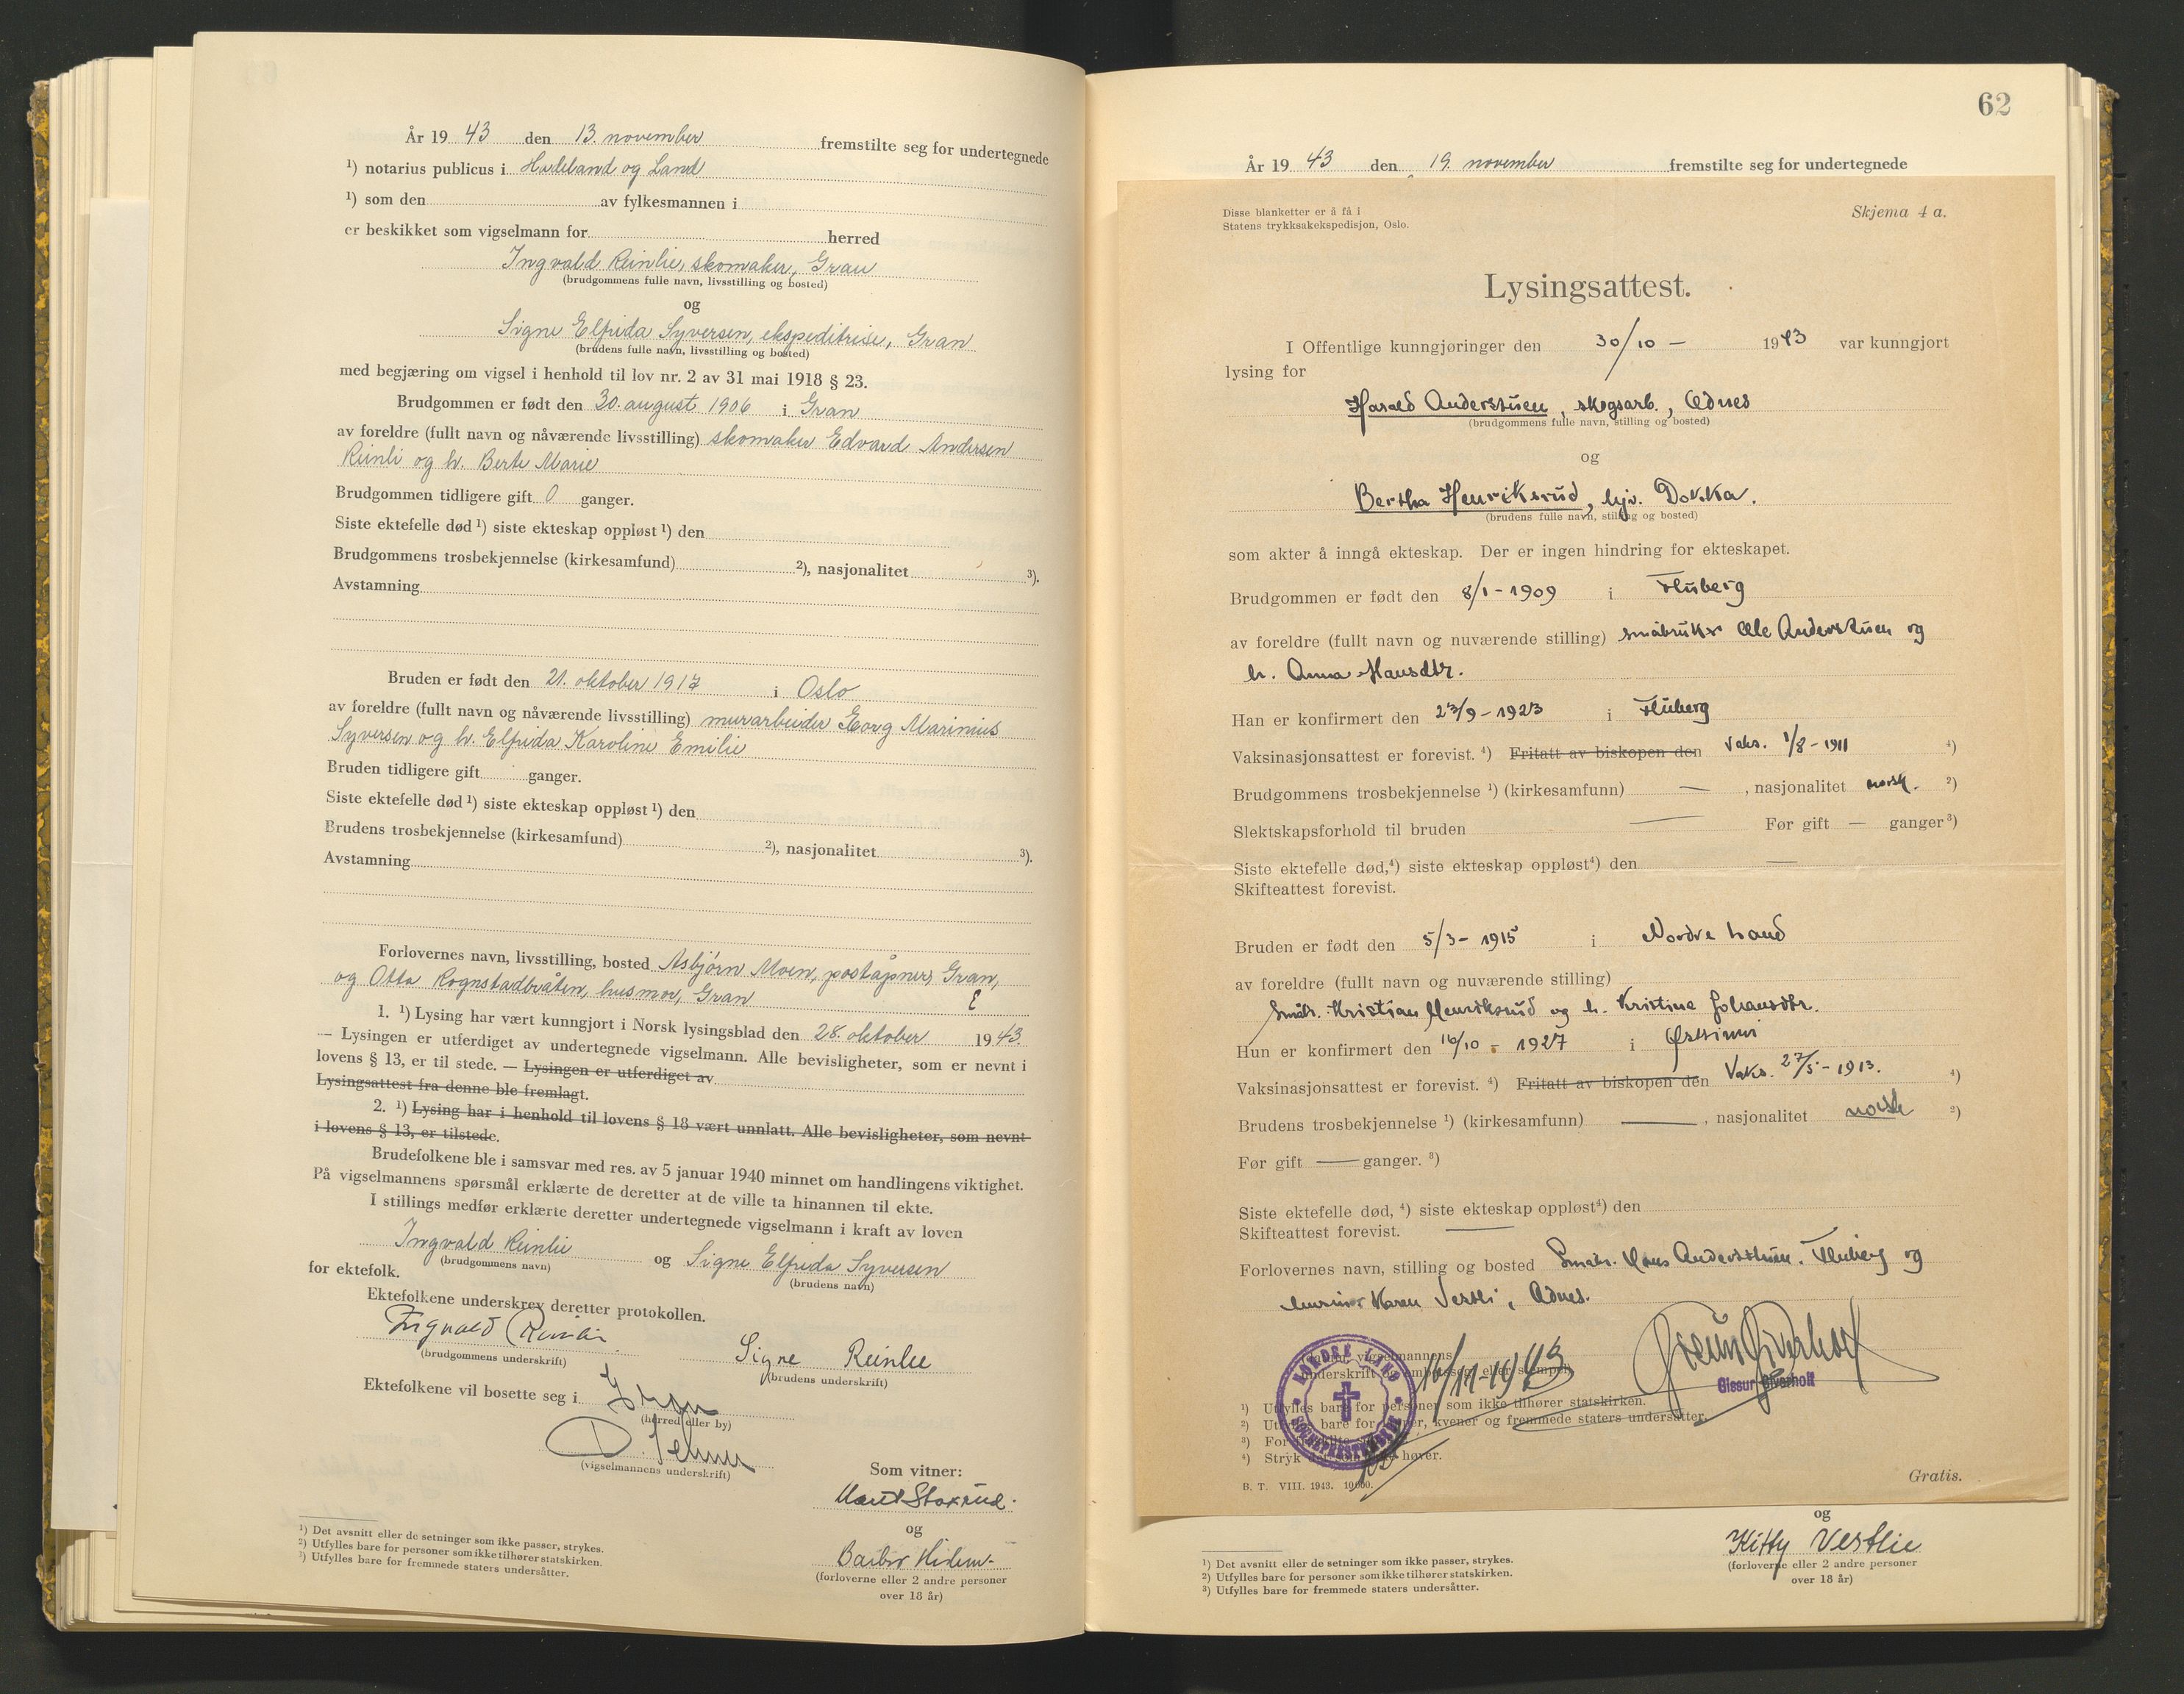 År 19 43 den 13. november fremstilte seg for undertegnede
¹) notarius publicus i Hadeland og Land
¹) som den av fylkesmannen i
er beskikket som vigselmann for herred
Ingvald Reinlie, skomaker, Gran
(brudgommens fulle navn, livsstilling og bosted)
og
Signe Elfrida Syversen, ekspeditrise, Gran
(brudens fulle navn, livsstilling og bosted)
med begjæring om vigsel i henhold til lov nr. 2 av 31 mai 1918 § 23.
Brudgommen er født den 30. august 1906 i Gran
av foreldre (fullt navn og nåværende livsstilling) skomaker Edvard Andersen
Reinli og h. Berte Marie
Brudgommen tidligere gift 0 ganger.
Siste ektefelle død ¹) siste ekteskap oppløst ¹) den
Brudgommens trosbekjennelse (kirkesamfund) ²), nasjonalitet ³).
Avstamning
Bruden er født den 21. oktober 1917 i Oslo
av foreldre (fullt navn og nåværende livsstilling) murarbeider Georg Marinius
Syversen og h. Elfrida Karoline Emilie
Bruden tidligere gift ganger.
Siste ektefelle død ¹) siste ekteskap oppløst ¹) den
Brudens trosbekjennelse (kirkesamfund) ²), nasjonalitet ³).
Avstamning
Forlovernes navn, livsstilling, bosted Asbjørn Moen, poståpner, Gran,
og Otta Rognstadbråten, husmor, Gran
1. ¹) Lysing har vært kunngjort i Norsk lysingsblad den 28. oktober 19 43
— Lysingen er utferdiget av undertegnede vigselmann. Alle bevisligheter, som er nevnt i
lovens § 13, er til stede. — Lysingen er utferdiget av
Lysingsattest fra denne ble fremlagt.
2. ¹) Lysing har i henhold til lovens § 18 vært unnlatt. Alle bevisligheter, som nevnt
i lovens § 13, er tilstede.
Brudefolkene ble i samsvar med res. av 5 januar 1940 minnet om handlingens viktighet.
På vigselmannens spørsmål erklærte de deretter at de ville ta hinannen til ekte.
I stillings medfør erklærte deretter undertegnede vigselmann i kraft av loven
Ingvald Reinlie og Signe Elfrida Syversen
(brudgommens navn) (brudens navn)
for ektefolk.
Ektefolkene underskrev deretter protokollen.
Ingvald Reinlie Signe Reinlie
(brudgommens underskrift) (brudens underskrift)
Ektefolkene vil bosette seg i Gran
(herred eller by)
(vigselmannens underskrift)
Som vitner:
og
(forloverne eller 2 andre personer
over 18 år)
¹) Det avsnitt eller de setninger som ikke passer, strykes.
²) Utfylles bare for personer som ikke tilhører statskirken.
³) Utfylles bare for fremmede staters undersåtter.
62
År 19 43 den 19. november fremstilte seg for undertegnede
Disse blanketter er å få i
Statens trykksakekspedisjon, Oslo.
Skjema 4 a.
Lysingsattest.
I Offentlige kunngjøringer den 30/10 – 1943 var kunngjort
lysing for
Harald Anderstuen, skogsarb., Odnes
(brudgommens fulle navn, stilling og bosted)
og
Bertha Henriksrud, hjv. Dokka.
(brudens fulle navn, stilling og bosted)
som akter å inngå ekteskap. Der er ingen hindring for ekteskapet.
Brudgommen er født den 8/1 - 1909 i Fluberg
av foreldre (fullt navn og nuværende stilling) småbruker Ole Anderstuen og
h. Anna Hansdtr.
Han er konfirmert den 23/9 - 1923 i Fluberg
Vaksinasjonsattest er forevist. ⁴) Fritatt av biskopen den Vaks. 1/8 - 1911 ⁴)
Brudgommens trosbekjennelse ¹) (kirkesamfunn) — , nasjonalitet norsk. ²)
Slektskapsforhold til bruden — Før gift — ganger ³)
Siste ektefelle død,⁴) siste ekteskap oppløst⁴) den —
Skifteattest forevist.
Bruden er født den 5/3 - 1915 i Nordre Land
av foreldre (fullt navn og nuværende stilling)
Småbr. Kristian Henriksrud og h. Kristine Johansdtr.
Hun er konfirmert den 16/10 - 1927 i Østsinni
Vaksinasjonsattest er forevist. ⁴) Fritatt av biskopen den Vaks. 27/5 - 1913. ⁴)
Brudens trosbekjennelse ¹) (kirkesamfunn) — , nasjonalitet norsk ²)
Før gift — ganger. ³)
Siste ektefelle død, ⁴) siste ekteskap oppløst⁴) den
Skifteattest forevist. —
Forlovernes navn, stilling og bosted Småbr. Hans Anderstuen, Fluberg og
husmor Karen Vestli, Odnes.
vigselmannens
underskrift og embetssegl eller stempel
16/11-1943
Gissur Giverholt
NORDRE LAND SOGNEPRESTEMBEDE
¹) Utfylles bare for personer som ikke tilhører statskirken.
²) Utfylles bare for kvener og fremmede staters undersåtter.
⁴) Stryk høver.
B. T. VIII. 1943. 10,000.
Gratis.
og
Kitty Vestlie
(forloverne eller 2 andre personer
over 18 år)
¹) Det avsnitt eller de setninger som ikke passer, strykes.
²) Utfylles bare for personer som ikke tilhører statskirken.
³) Utfylles bare for fremmede staters undersåtter.